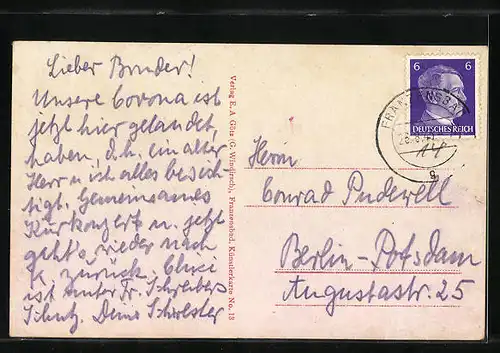 Lieber Bruder!
Unsere Corona ist
jetzt hier gelandet,
haben, d.h. ein alter
Herr u. ist alles besich-
tigt. Gemeinsames
Kurkonzert u. jetzt
geht's wieder nach
K. zurück.
ist unter Fr. Schreibers
Schutz. Deine Schwester
Verlag E. A. Götz (G. Windirsch), Franzensbad. Künstlerkarte No. 18
6 6
DEUTSCHES REICH
FRANZENSBAD
Herrn
Conrad Puderell
Berlin-Potsdam
Augustastr. 25